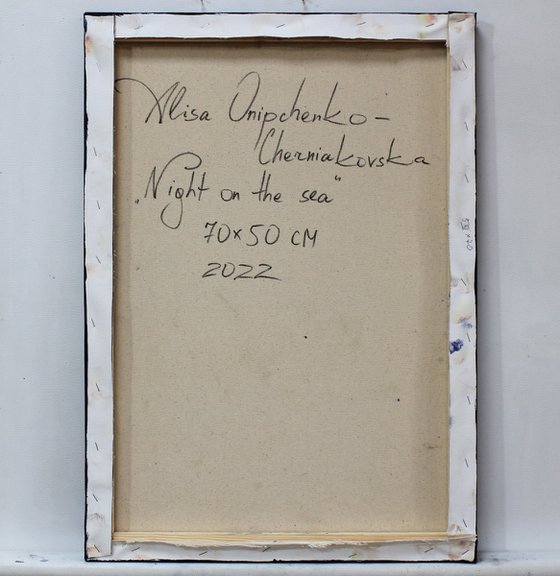 Alisa Onipchenko-
Cherniakovska
„Night on the sea"
70x50 CM
2022
50x70